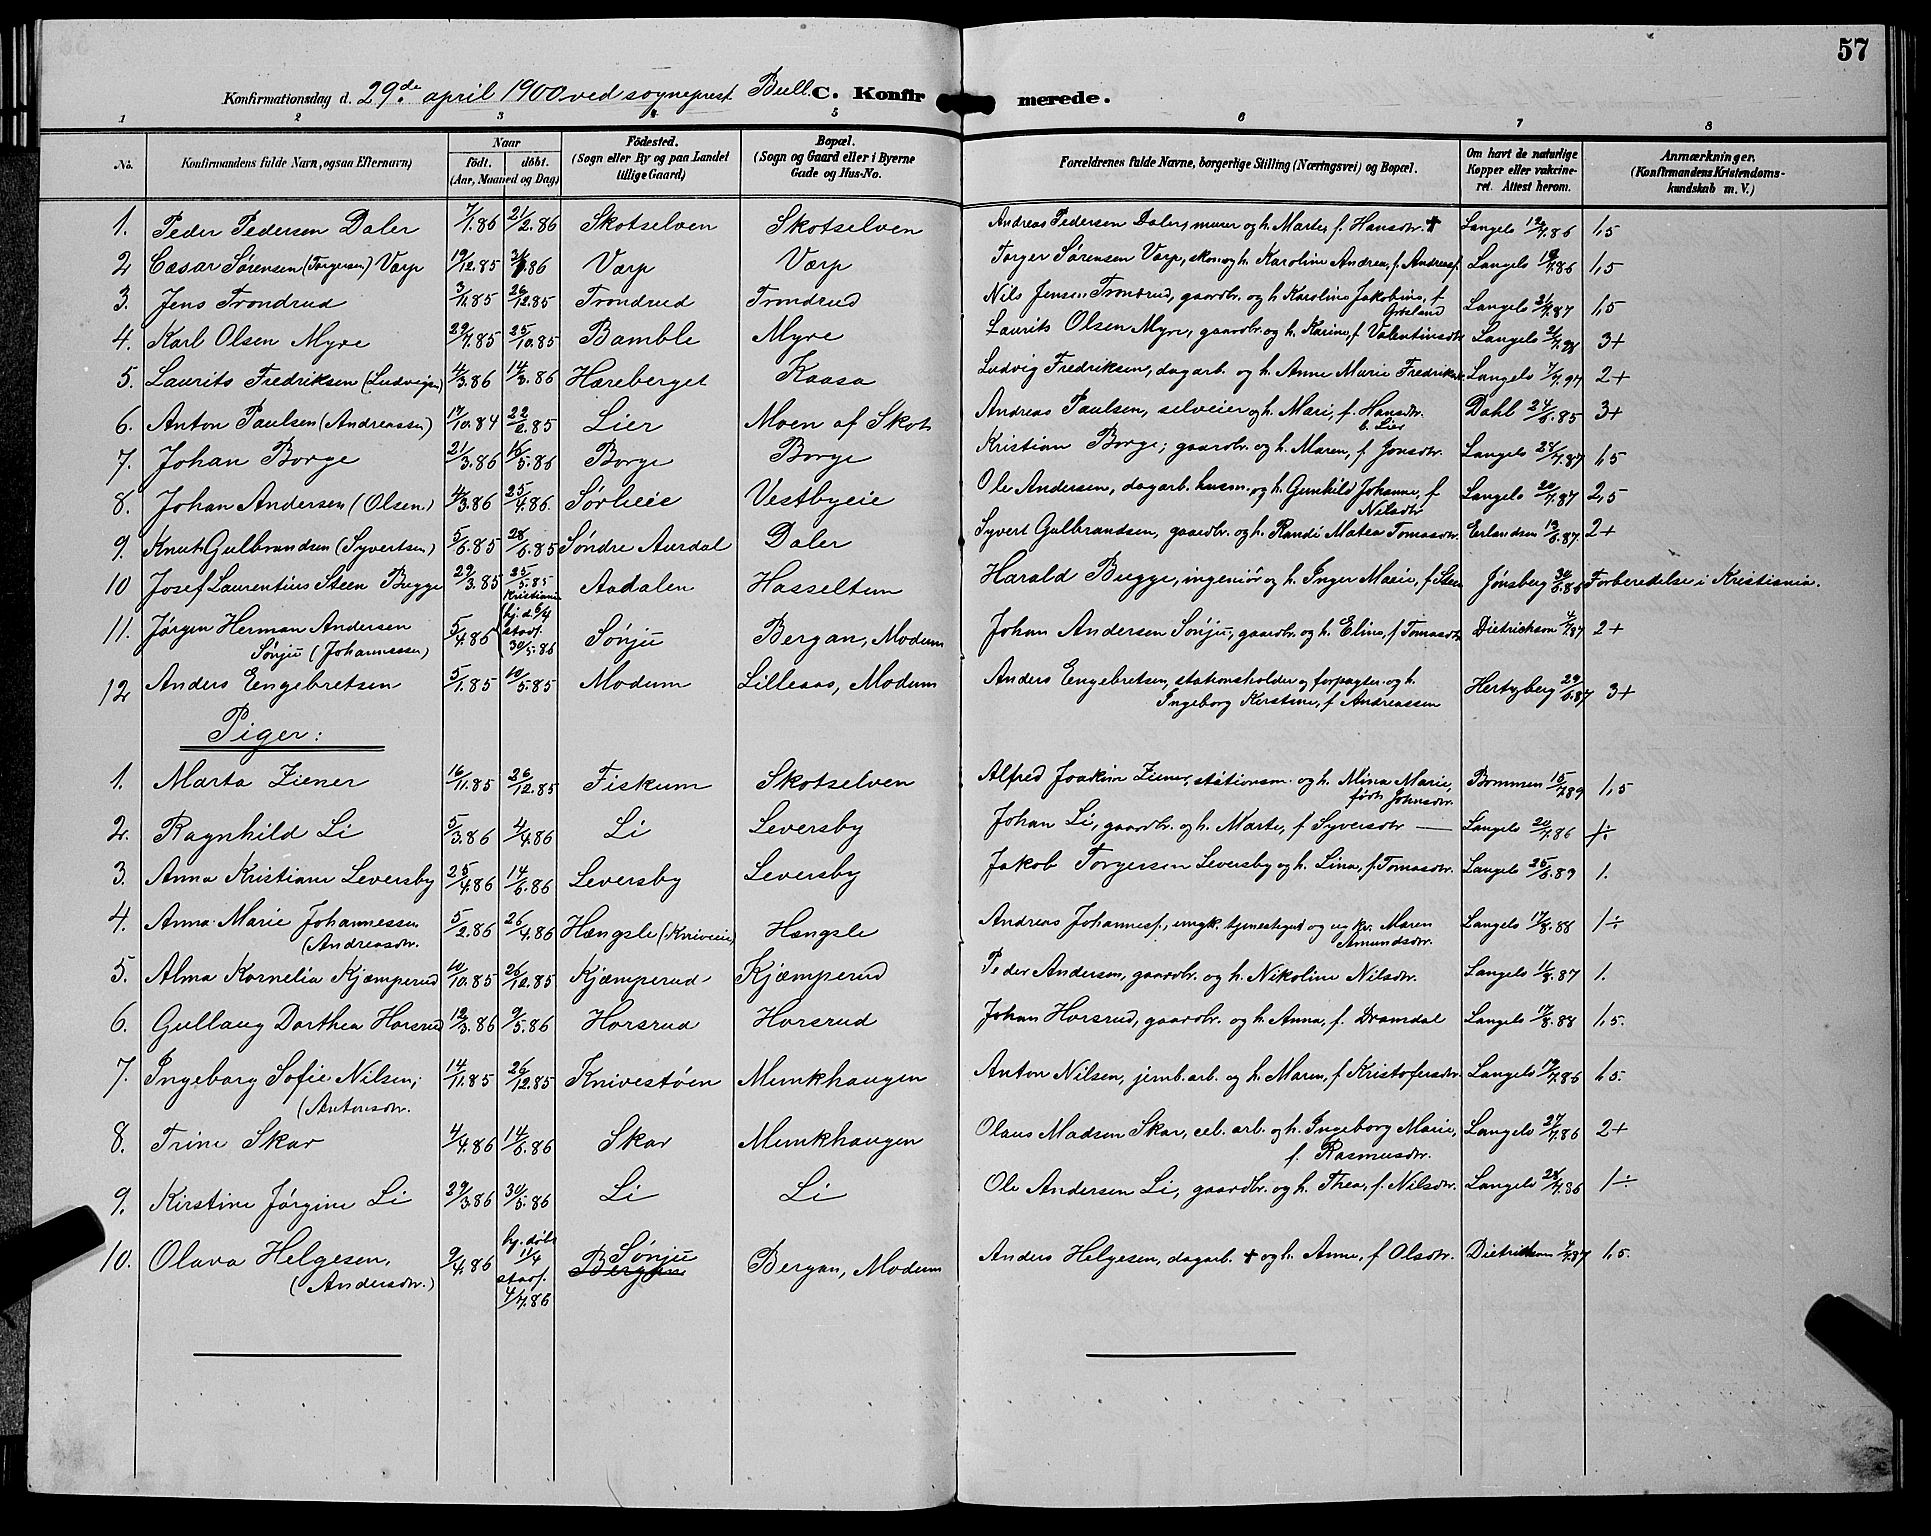 57
Konfirmationsdag d. 29.de april 1900 ved sogneprest Bull. C. Konfirmerede.
1 2 3 4 5 6 7 8
No. Konfirmandens fulde Navn, ogsaa Efternavn) Naar født. døbt. (Aar, Maaned og Dag) Fødested. (Sogn eller By og paa Landet tillige Gaard) Bopæl. (Sogn og Gaard eller i Byerne Gade og Hus-No. Forældrenes fulde Navne, borgerlige Stilling (Næringsvei) og Bopæl. Om havt de naturlige Kopper eller vakcineret. Attest herom. Anmærkninger. (Konfirmandens Kristendomskundskab m. V.)
1. Peder Pedersen Daler 7/1.86 21/2.86 Skotselven Skotselven Andreas Pedersen Daler, murer og h. Marte, f. Hansdtr. + Langelo 12/7.86 1,5
2 Cæsar Sørensen (Torgersen) Varp 19/12.85 86 Varp Varp Torger Sørensen Varp, skom. og h. Karoline Andrea, f. Andreasd. Langelo 19/7.86 1,5
3. Jens Trondrud 3/11.85 26/12.85 Trondrud Trondrud Nils Jensen Trondrud, gaardbr. og h. Karoline Jakobine, f. Langelo 21/7.87 1,5
4. Karl Olsen Myre 29/7.85 25/10.85 Bamble Myre Laurits Olsen Myre, gaardbr. og h. Karine, f. Valentinsdtr. Langelo 3+
5. Laurits Fredriksen (Ludvigsen) 4/3.86 14/3.86 Hæreberget Kaasa Ludvig Fredriksen, dagarb. og h. Anne Marie Fredriksd. Langelo 7/7.97 2+
6. Anton Paulsen (Andreassen) 17/10.84 22/2.85 Lier Moen af Skots Andreas Paulsen, selveier og h. Mari, f. Hansdtr. Dahl 24/6.85 3+
b. Lier
7. Johan Borge 21/3.86 16/5.86 Borge Borge Kristian Borge, gaardbr. og h. Maren, f. Jonsdtr. Langelo 28/7.87 1,5
8. Johan Andersen (Olsen) 4/3.86 25/4.86. Sørlieie Vestbyeie Ole Andersen, dagarb. husm. og h. Gunhild Johanne, f. Langelo 20/7.87 2,5
Nilsdtr
9. Knut Gulbrandsen (Syvertsen) 5/6.85 28/6.85 Søndre Aurdal Daler Syvert Gulbrandsen, gaardbr. og h. Randi Matea Tomasdtr. Erlandsen 13/6.87 2+
10 Josef Laurentius Steen Bugge 29/3.85 25/5.85 Kristiania Aadalen Hasseltun Harald Bugge, ingeniør og h. Inger Marie, f. Steen Jønsberg 86 Forberedelse i Kristiania.
11. Jørgen Herman Andersen 5/4.85 hj. d. 6/4 stadf. 30/5.86 Sønju Bergan, Modum Johan Andersen Sønju, gaardbr. og h. Eline, f. Tomasdtr. Dietrichson 4/7.87 2+
Sønju (Johannessen)
12 Anders Engebretsen 5/1.85 10/5.85 Modum Lilleaas, Modum Anders Engebretsen, stationsholder og forpagter og h. Hertzberg 29/6.87 3+
Ingeborg Kirstine, f. Andreassen
Piger:
1. Marta Ziener 16/11.85 26/12.85 Fiskum Skotselven Alfred Joakim Ziener, stationsm. og h. Mina Marie, Bommen 15/7.89 1,5
født Johnsdtr.
2. Ragnhild Li 5/3.86 4/4.86 Li Leversby Johan Li, gaardbr. og h. Marte, f. Syversdtr — Langelo 20/7.86 1÷
3. Anna Kristiane Leversby 25/4.86 14/6.86 Leversby Leversby Jakob Torgersen Leversby og h. Lina, f. Tomasdtr. Langelo 25/6.89 1.
4. Anna Marie Johannessen 5/2.86 26/4.86 Hængsle (Kniveeie) Hængsle Andreas Johannesf., ungk. tjenestegut og ug. kv. Maren Langelo 17/8.88 1÷
(Andreasdtr. Amundsdtr.
5. Alma Kornelia Kjæmperud 10/10.85 26/12.85 Kjæmperud Kjæmperud Peder Andersen, gaardbr. og h. Nikoline Nilsdtr. Langelo 11/8.87 1.
6. Gullaug Dorthea Horsrud 12/3.86 9/5.86 Horsrud Horsrud Johan Horsrud, gaardbr. og h. Anna, f. Dramdal Langelo 17/8.88 1,5.
7. Ingeborg Sofie Nilsen, 14/11.85 26/12.85 Knivestøen Munkhaugen Anton Nilsen, jernb.arb. og h. Maren, f. Kristofersdtr. Langelo 19/7.86 1,5.
(Antonsdtr.
8. Trine Skar 4/4.86 14/6.86 Skar Munkhaugen Olaus Madsen Skar, cel. arb. og h. Ingeborg Marie, Langelo 27/7.86 2+
f. Rasmusdtr.
9. Kirstine Jørgine Li 29/3.86 30/5.86 Li Li Ole Andersen Li, gaardbr. og h. Thea, f. Nilsdtr. Langelo 28/7.86 1÷
10. Olava Helgesen, 9/4.86 hj. døbt 11/4 stadf. 4/7.86 Sønju Bergan Bergan, Modum Anders Helgesen, dagarb. + og h. Anne, f. Olsdtr. Dietrichson 4/7.87 1,5.
(Andersdtr.)